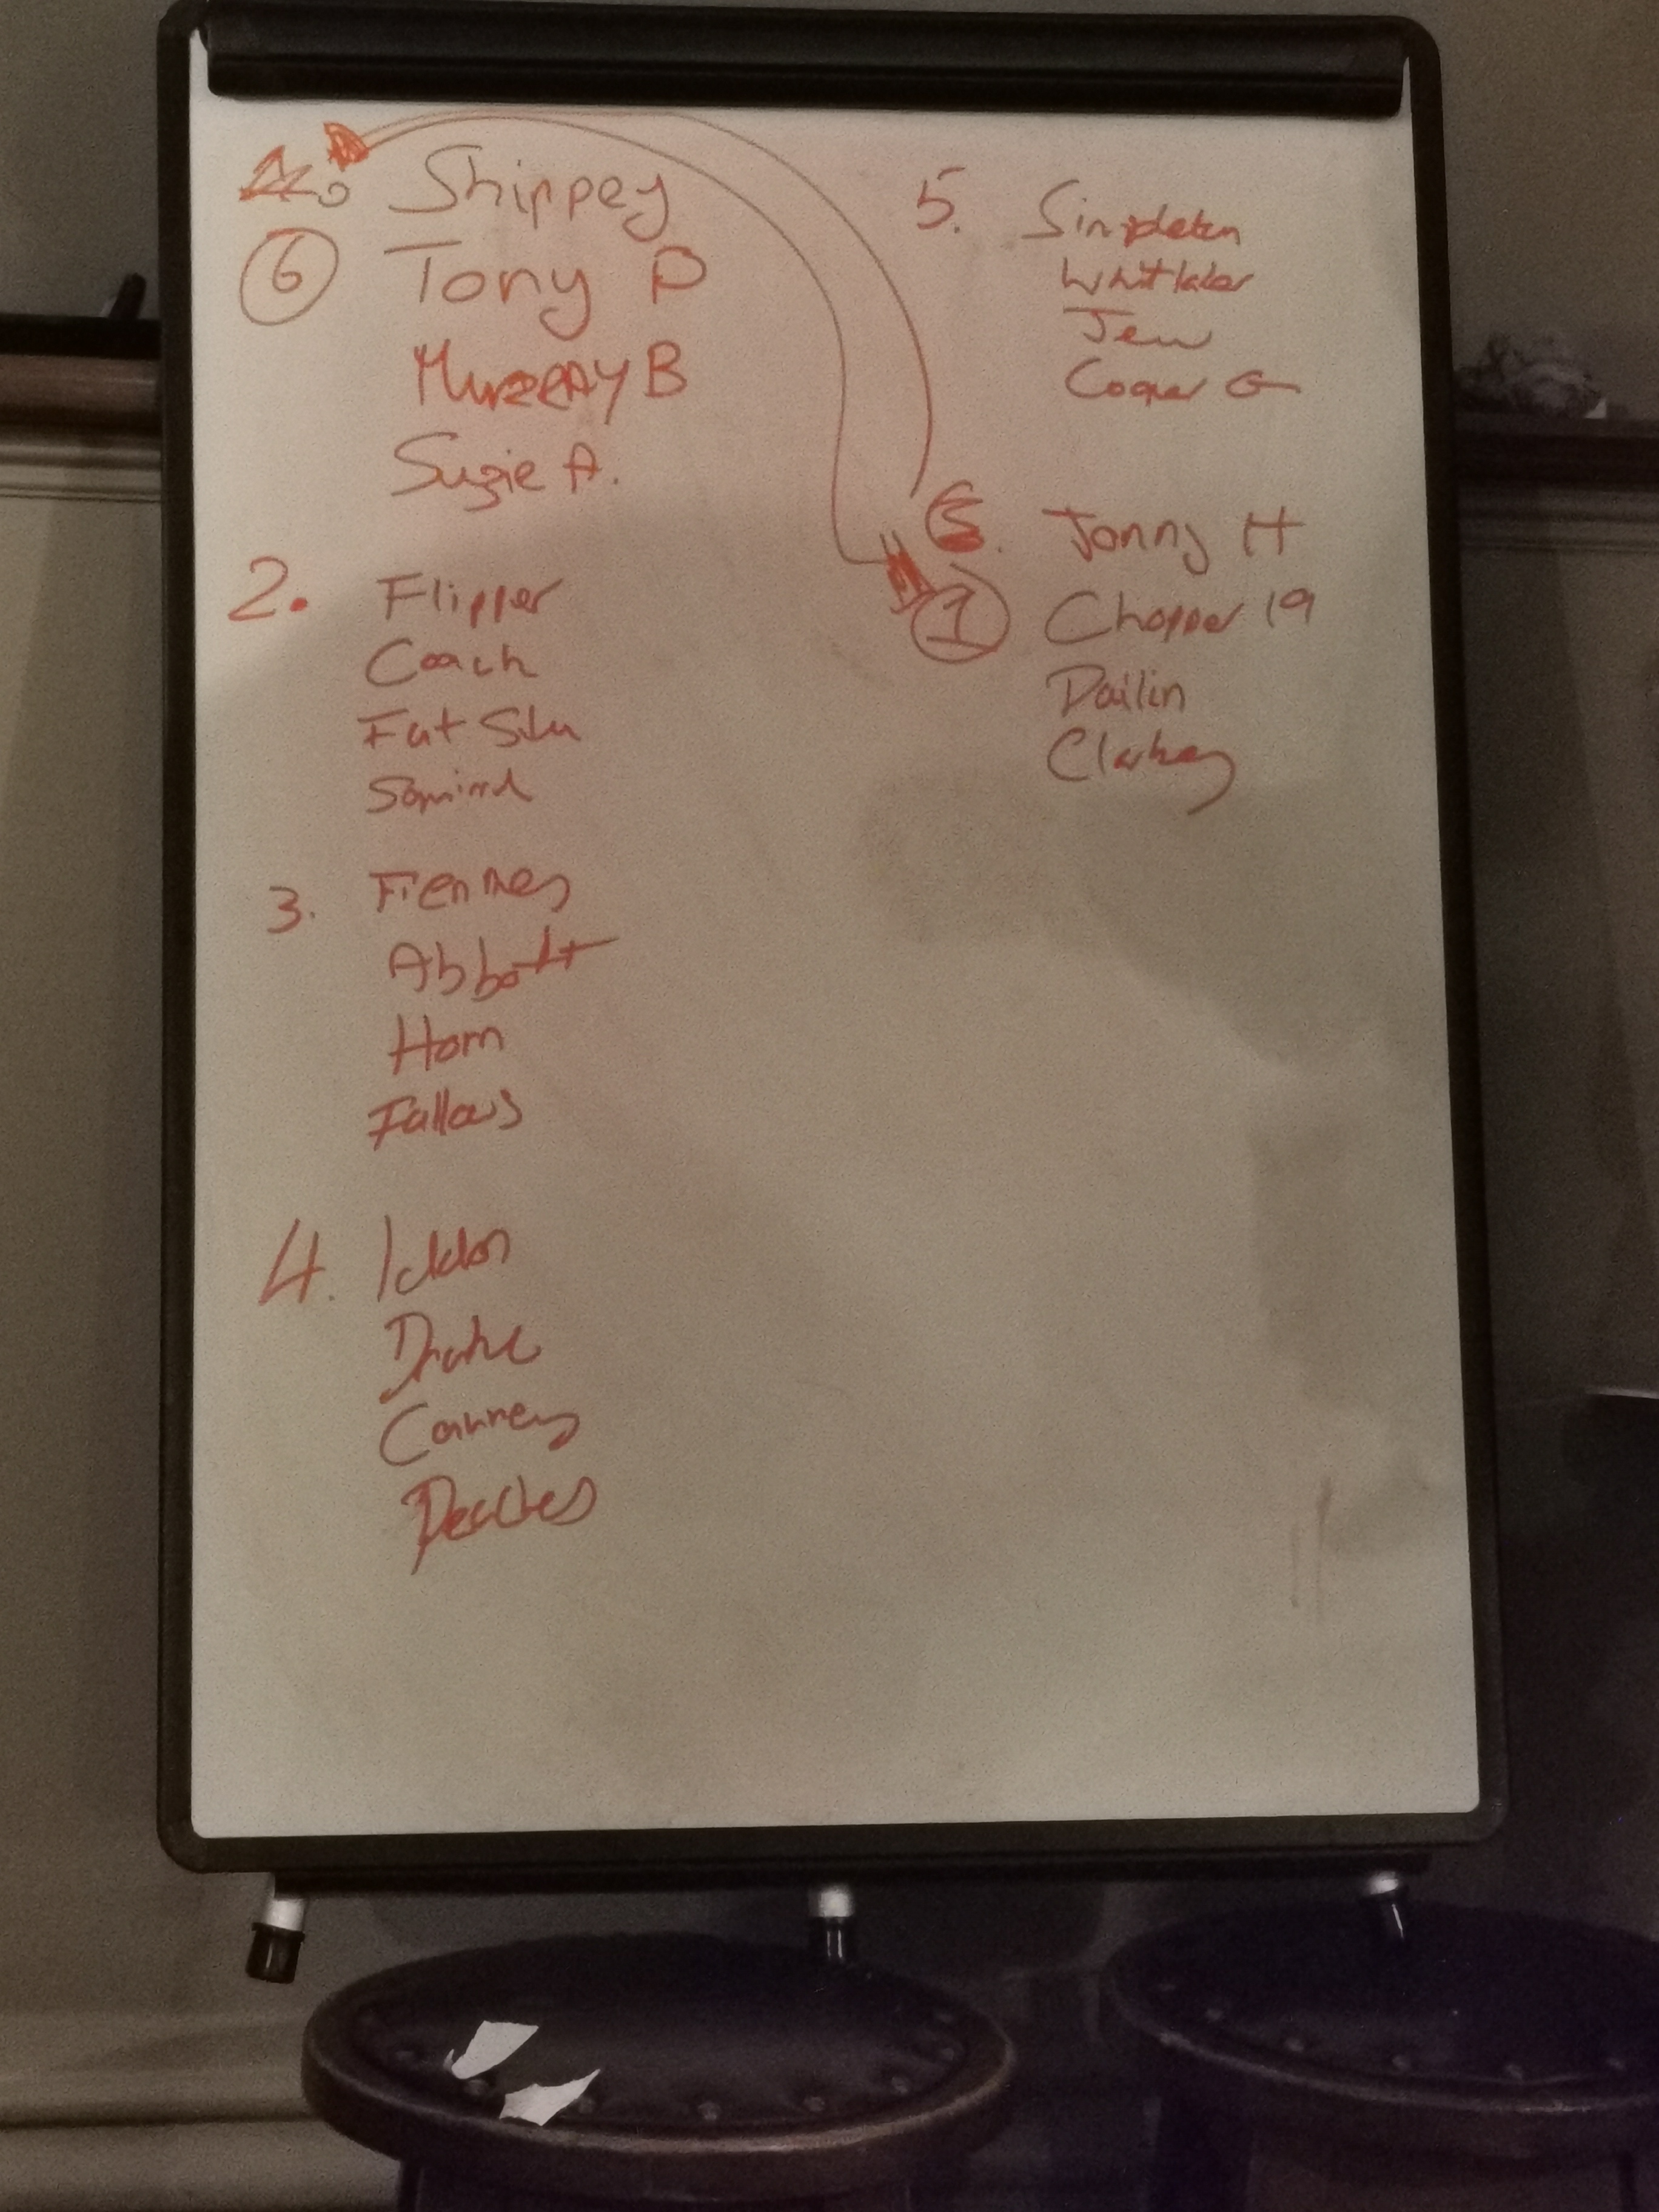 1. Shippey
6 Tony P
Murray B
Suzie A.
2. Flipper
Coach
Fat Slu
Squirrel
3. Fienney
Abbott
Horn
Fallows
4. Iddon
Drake
Canney
5. Singleton
Whittaker
Jew
Cooper G
6. Jonny H
1 Chopper 19
Dailin
Clarkey